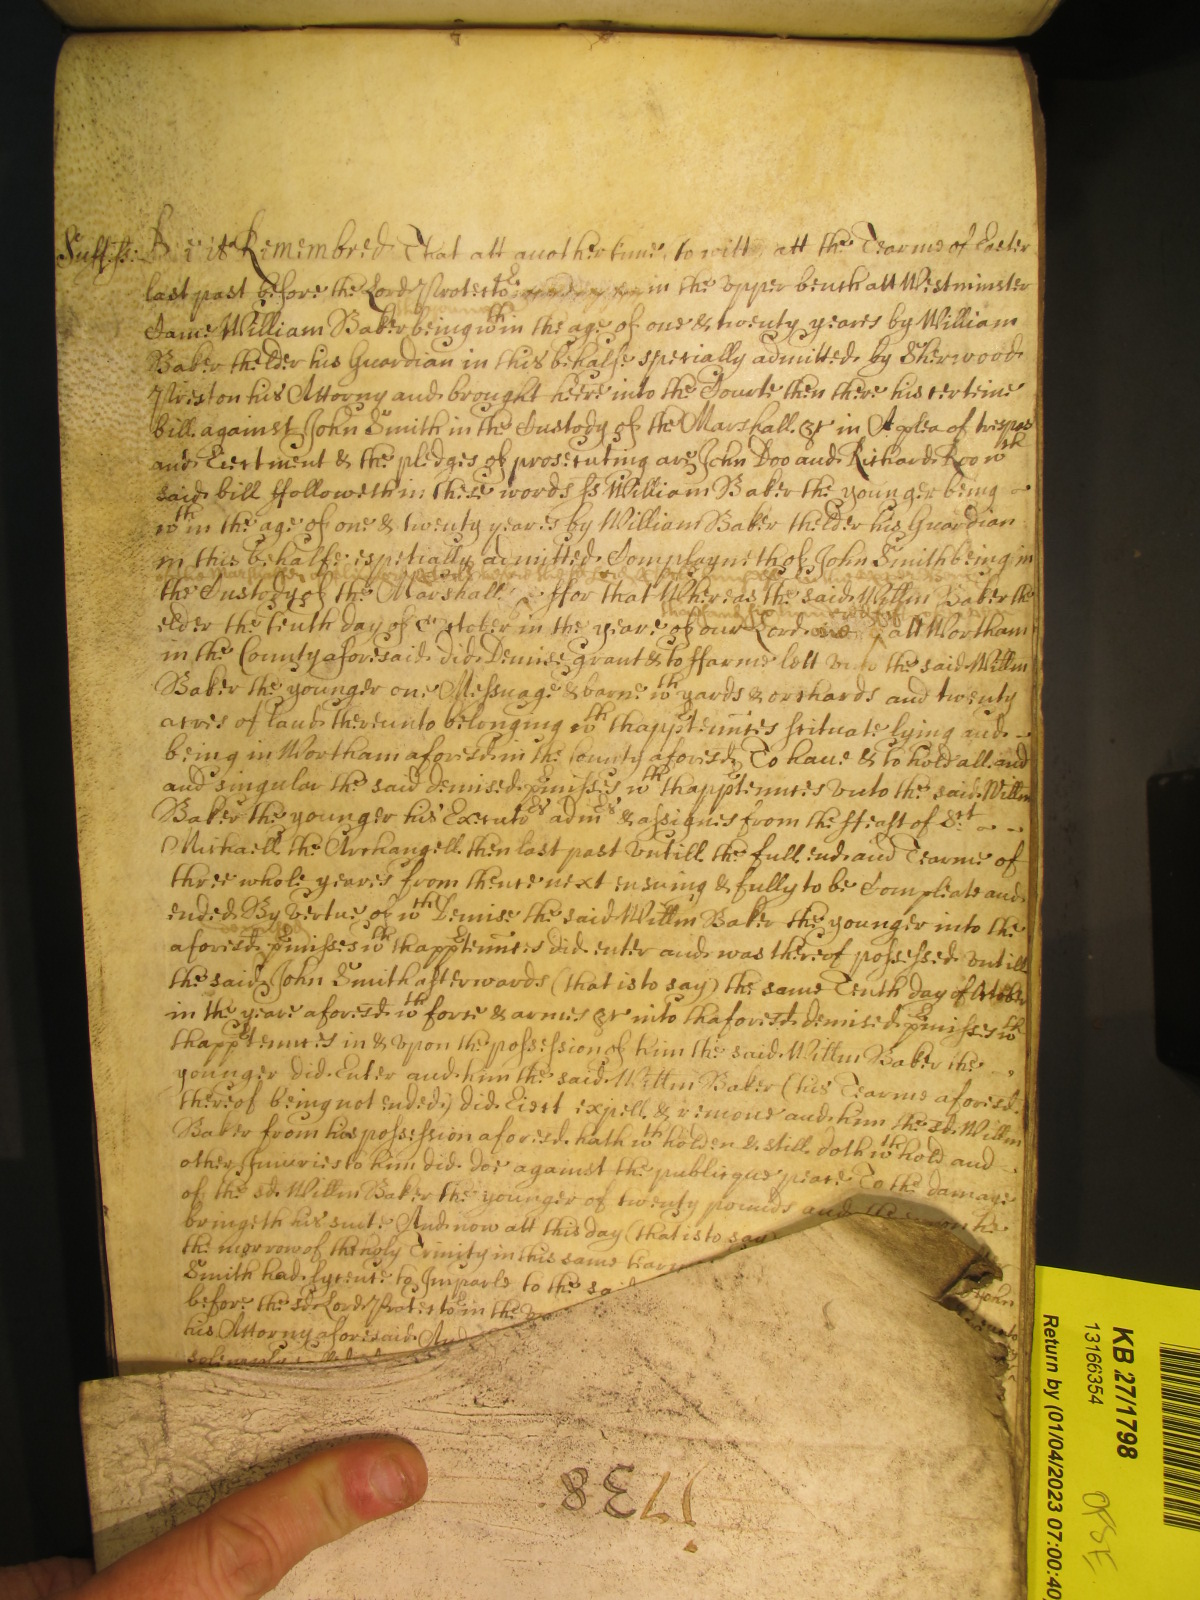 Suff: ss: Be it Remembred That att another time, to witt, att the Tearme of Easter
last past before the Lord Protector in the upper bench att Westminster
Came William Baker being wthin the age of one & twenty yeares by William
Baker thelder his Guardian in this behalfe specially admitted by Sherwood
Preston his Attorny and brought heere into the Courte then there his certeine
bill against John Smith in the Custody of the Marshall &c in A plea of trespas
and Eiectment & the pledges of prosecuting are John Doo and Richard Roo wch
said bill ffolloweth in these words ss William Baker the younger being
wthin the age of one & twenty yeares by William Baker thelder his Guardian
in this behalfe espetially admitted Complayneth of John Smith being in
the Custody of the Marshall &c ffor that Whereas the said Willm Baker the
elder the tenth day of October in the yeare of our Lord att Wortham
in the County aforesaid did Demise grant & to ffarme lett unto the said Willm
Baker the younger one Messuage & barne wth yards & orchards and twenty
acres of land thereunto belonging wth thapptennces scituate lying and
being in Wortham aforesd in the County aforesd To have & to hold all and
and singular the said demised pmisses wth thapptennces unto the said Willm
Baker the younger his Executors admrs & assignes from the ffeast of St
Michaell the Archangell then last past untill the full end and Tearme of
three whole yeares from thence next ensuing & fully to be Compleate and
ended By vertue of wch Demise the said Willm Baker the younger into the
aforesd pmisses wth thapptennces did enter and was thereof possessed untill
the said John Smith afterwards (that is to say) the same Tenth day of October
in the yeare aforesd wth force & armes &c into thaforesd demised pmisses wth
thapptennces in & upon the possession of him the said Willm Baker the
younger did Enter and him the said Willm Baker (his Tearme aforesd
thereof being not ended) did Eiect expell & remove and him the sd Willm
Baker from his possession aforesd hath wthholden & still doth wthhold and
other Iniuries to him did doe against the publicque peace To the damage
of the sd Willm Baker the younger of twenty pounds and thereupon he
bringeth his suite And now att this day (that is to say
the morrow of the holy Trinity in this same tearme
Smith had lycence to Imparle to the sa John
before the sd Lord Protector in the
his Attorny aforesaid And
1738
KB 27/1798
13166354
Return by (01/04/2023 07:00:40